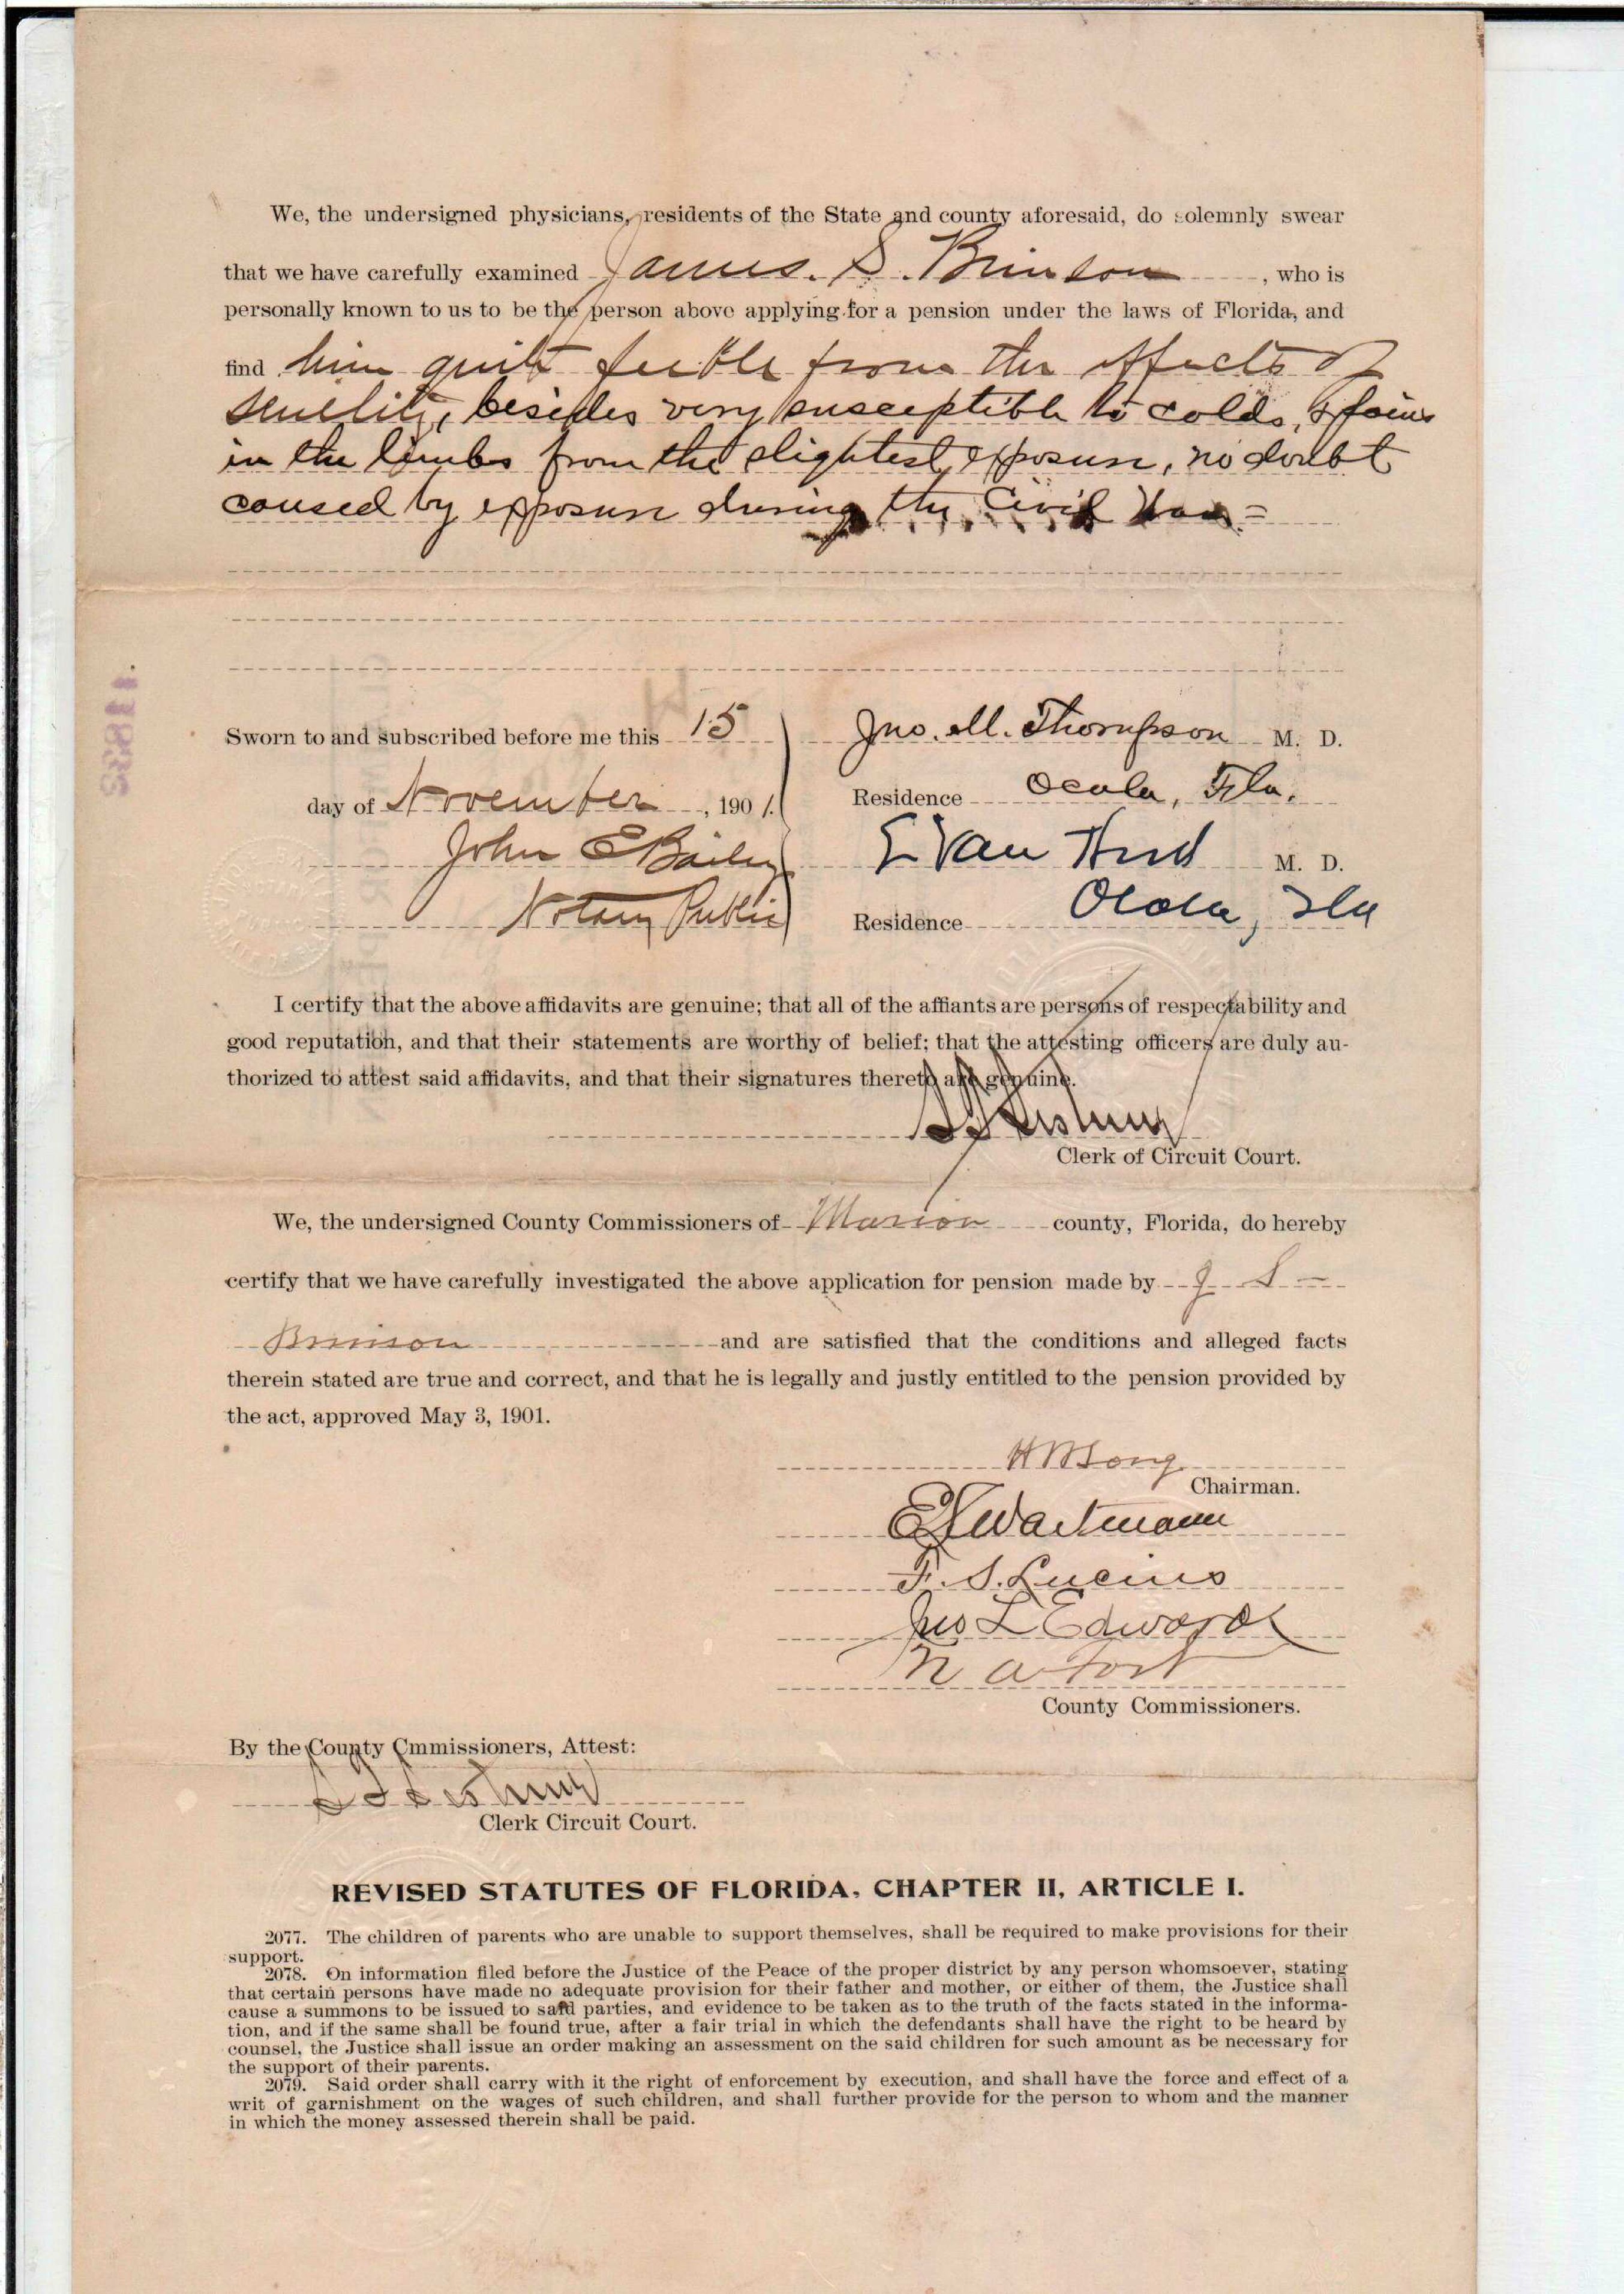 We, the undersigned physicians, residents of the State and county aforesaid, do solemnly swear
that we have carefully examined James. S. Brinson, who is
personally known to us to be the person above applying for a pension under the laws of Florida, and
find him quite feeble from the effects of
senility, besides very susceptible to colds, & pains
in the limbs from the slightest exposure, no doubt
caused by exposure during the Civil War =
11832
Sworn to and subscribed before me this 15
day of November, 1901.
John E Bailey
Notary Public
Jno. M. Thompson M. D.
Residence Ocala, Fla.
E Van Hood M. D.
Residence Ocala, Fla
I certify that the above affidavits are genuine; that all of the affiants are persons of respectability and
good reputation, and that their statements are worthy of belief; that the attesting officers are duly au-
thorized to attest said affidavits, and that their signatures thereto are genuine.
Clerk of Circuit Court.
We, the undersigned County Commissioners of Marion county, Florida, do hereby
certify that we have carefully investigated the above application for pension made by J S
Brinson and are satisfied that the conditions and alleged facts
therein stated are true and correct, and that he is legally and justly entitled to the pension provided by
the act, approved May 3, 1901.
H W Long
Chairman.
E L Wartmann
F. S. Lucius
Jno L Edwards
N A Fort
County Commissioners.
By the County Cmmissioners, Attest:
Clerk Circuit Court.
REVISED STATUTES OF FLORIDA, CHAPTER II, ARTICLE I.
2077. The children of parents who are unable to support themselves, shall be required to make provisions for their
support.
2078. On information filed before the Justice of the Peace of the proper district by any person whomsoever, stating
that certain persons have made no adequate provision for their father and mother, or either of them, the Justice shall
cause a summons to be issued to said parties, and evidence to be taken as to the truth of the facts stated in the informa-
tion, and if the same shall be found true, after a fair trial in which the defendants shall have the right to be heard by
counsel, the Justice shall issue an order making an assessment on the said children for such amount as be necessary for
the support of their parents.
2079. Said order shall carry with it the right of enforcement by execution, and shall have the force and effect of a
writ of garnishment on the wages of such children, and shall further provide for the person to whom and the manner
in which the money assessed therein shall be paid.